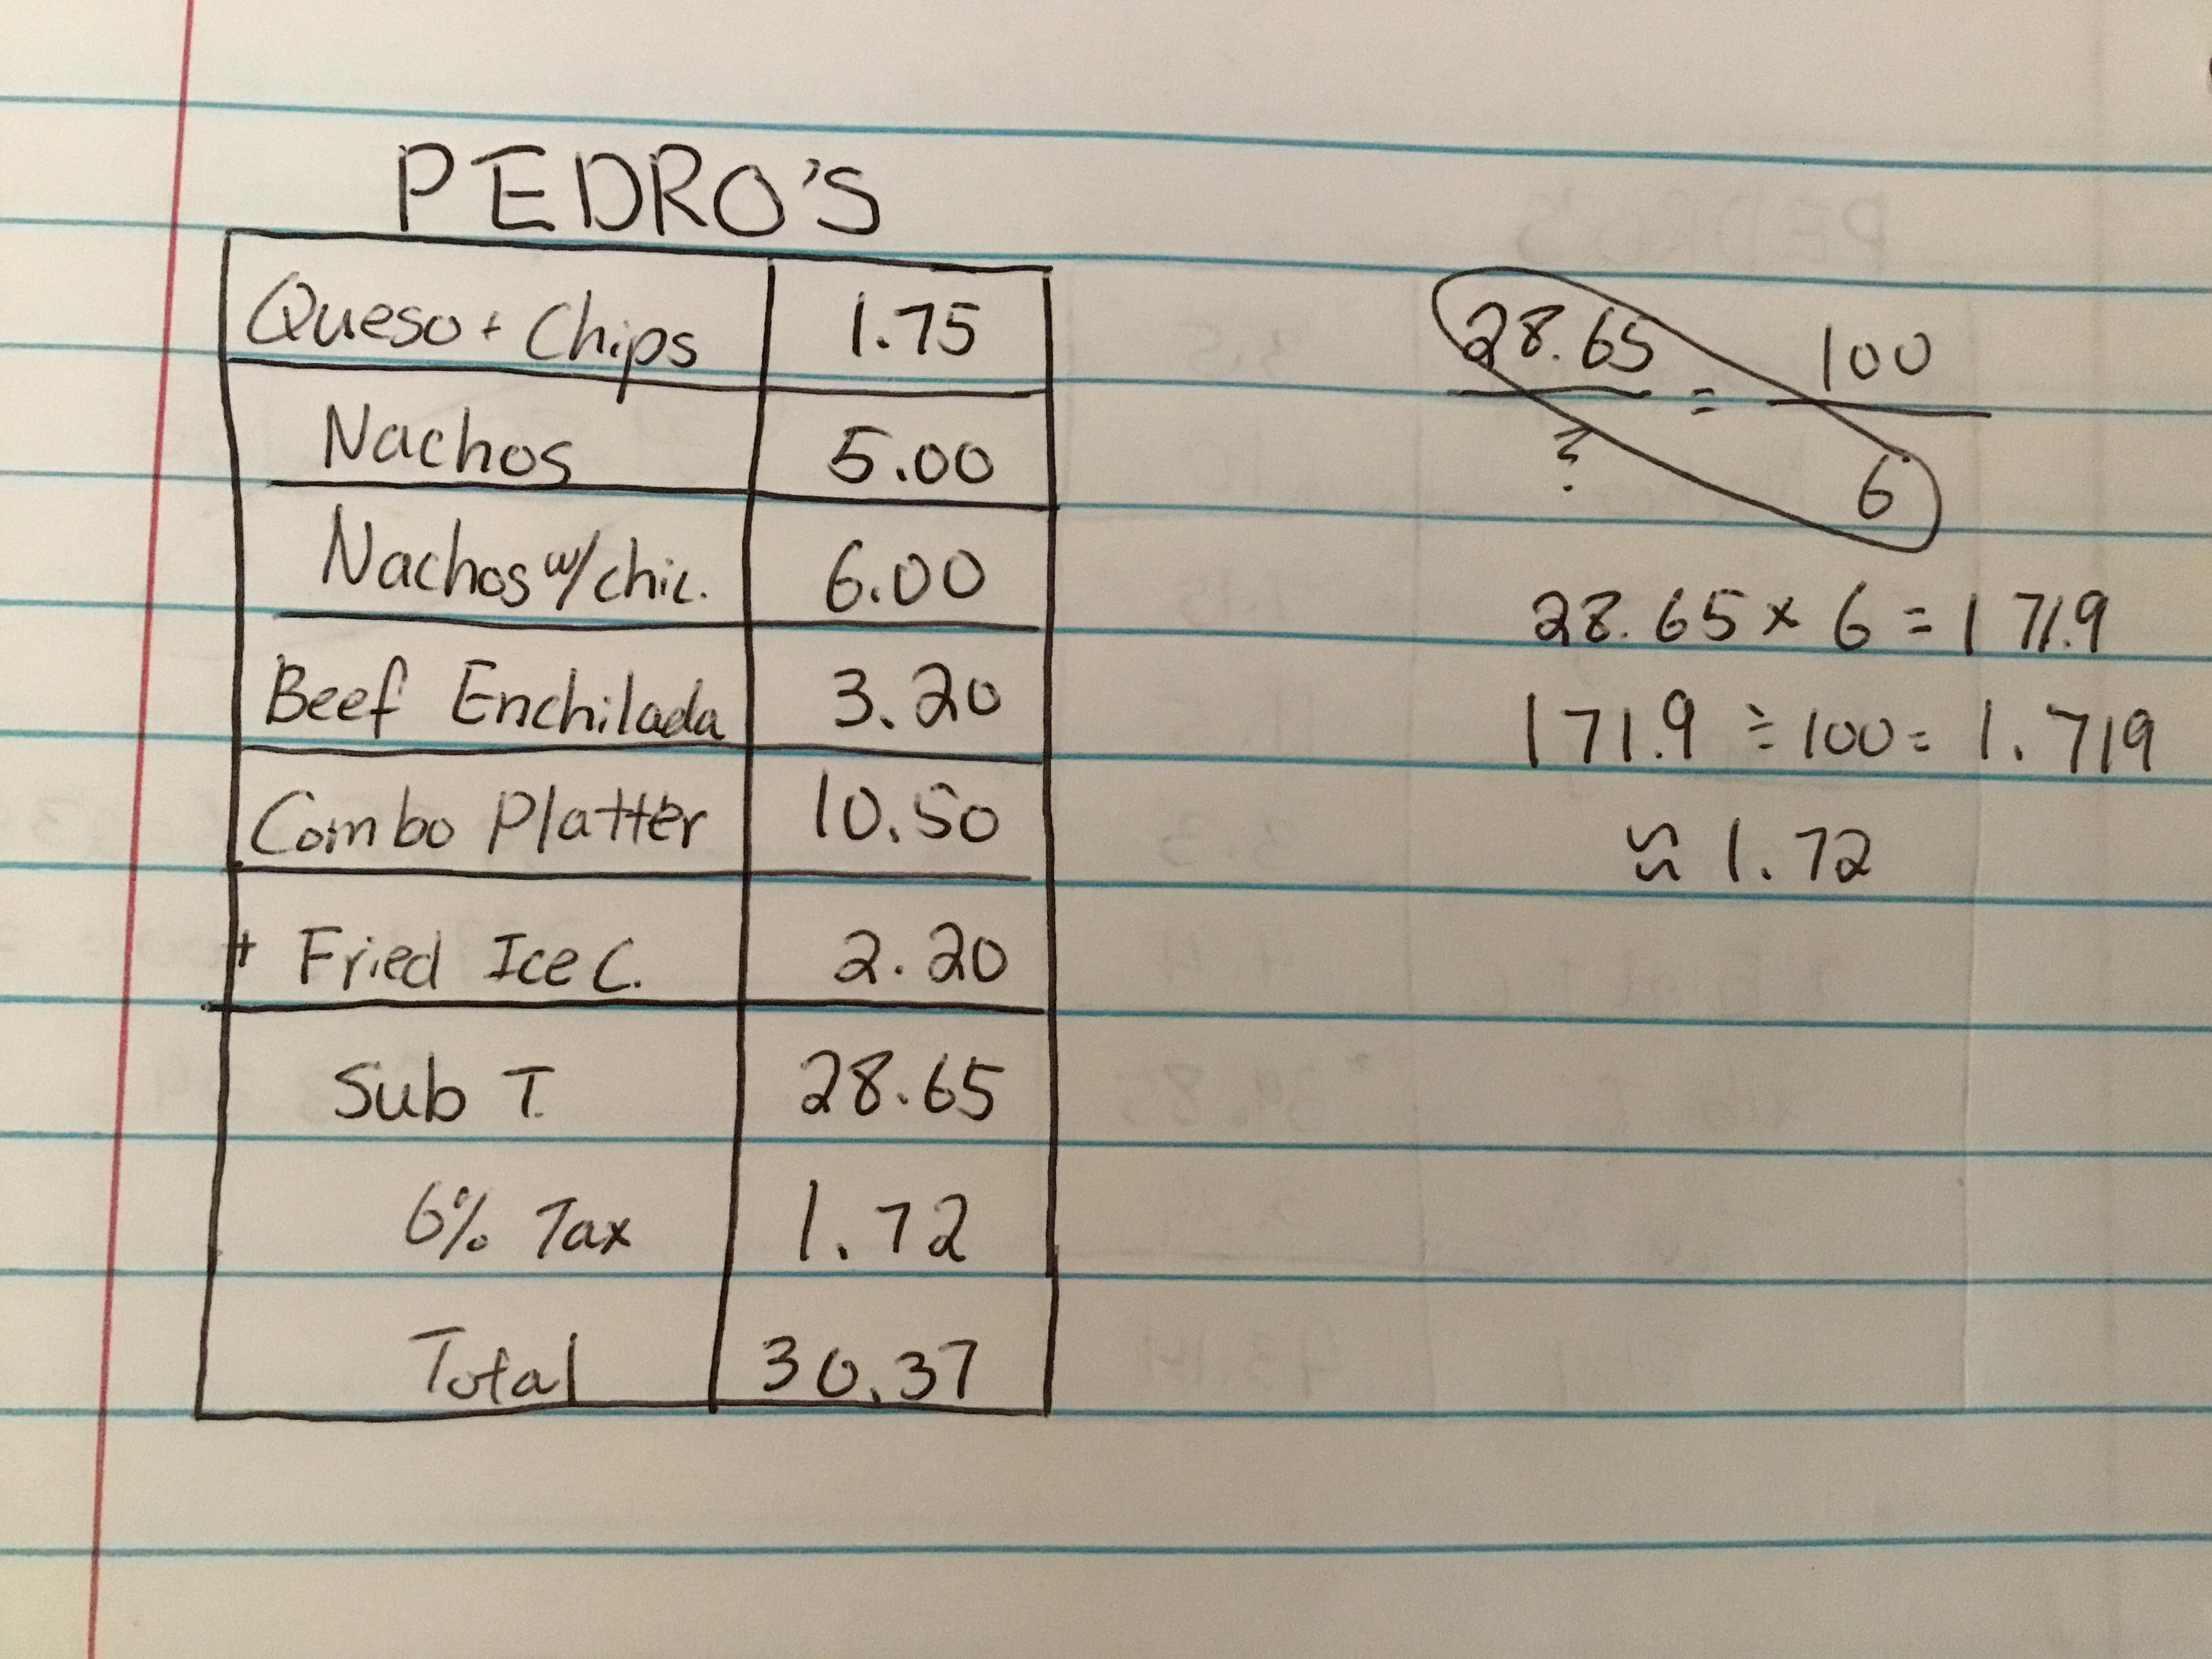 PEDRO'S
Queso + Chips 1.75
Nachos 5.00
Nachos w/chic. 6.00
Beef Enchilada 3.20
Combo Platter 10.50
+ Fried Ice C. 2.20
Sub T. 28.65
6% Tax 1.72
Total 30.37
28.65 = 100
? 6
28.65 × 6 = 171.9
171.9 ÷ 100 = 1.719
≈ 1.72